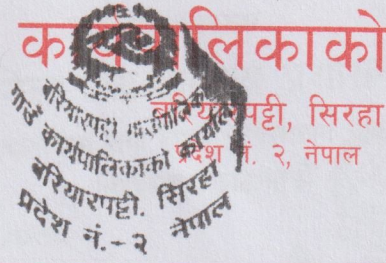 कार्यपालिकाको
बरियारपट्टी, सिरहा
प्रदेश नं. २, नेपाल
बरियारपट्टी गाउँपालिका
गाउँ कार्यपालिकाको कार्यालय
बरियारपट्टी. सिरहा
प्रदेश नं.-२ नेपाल